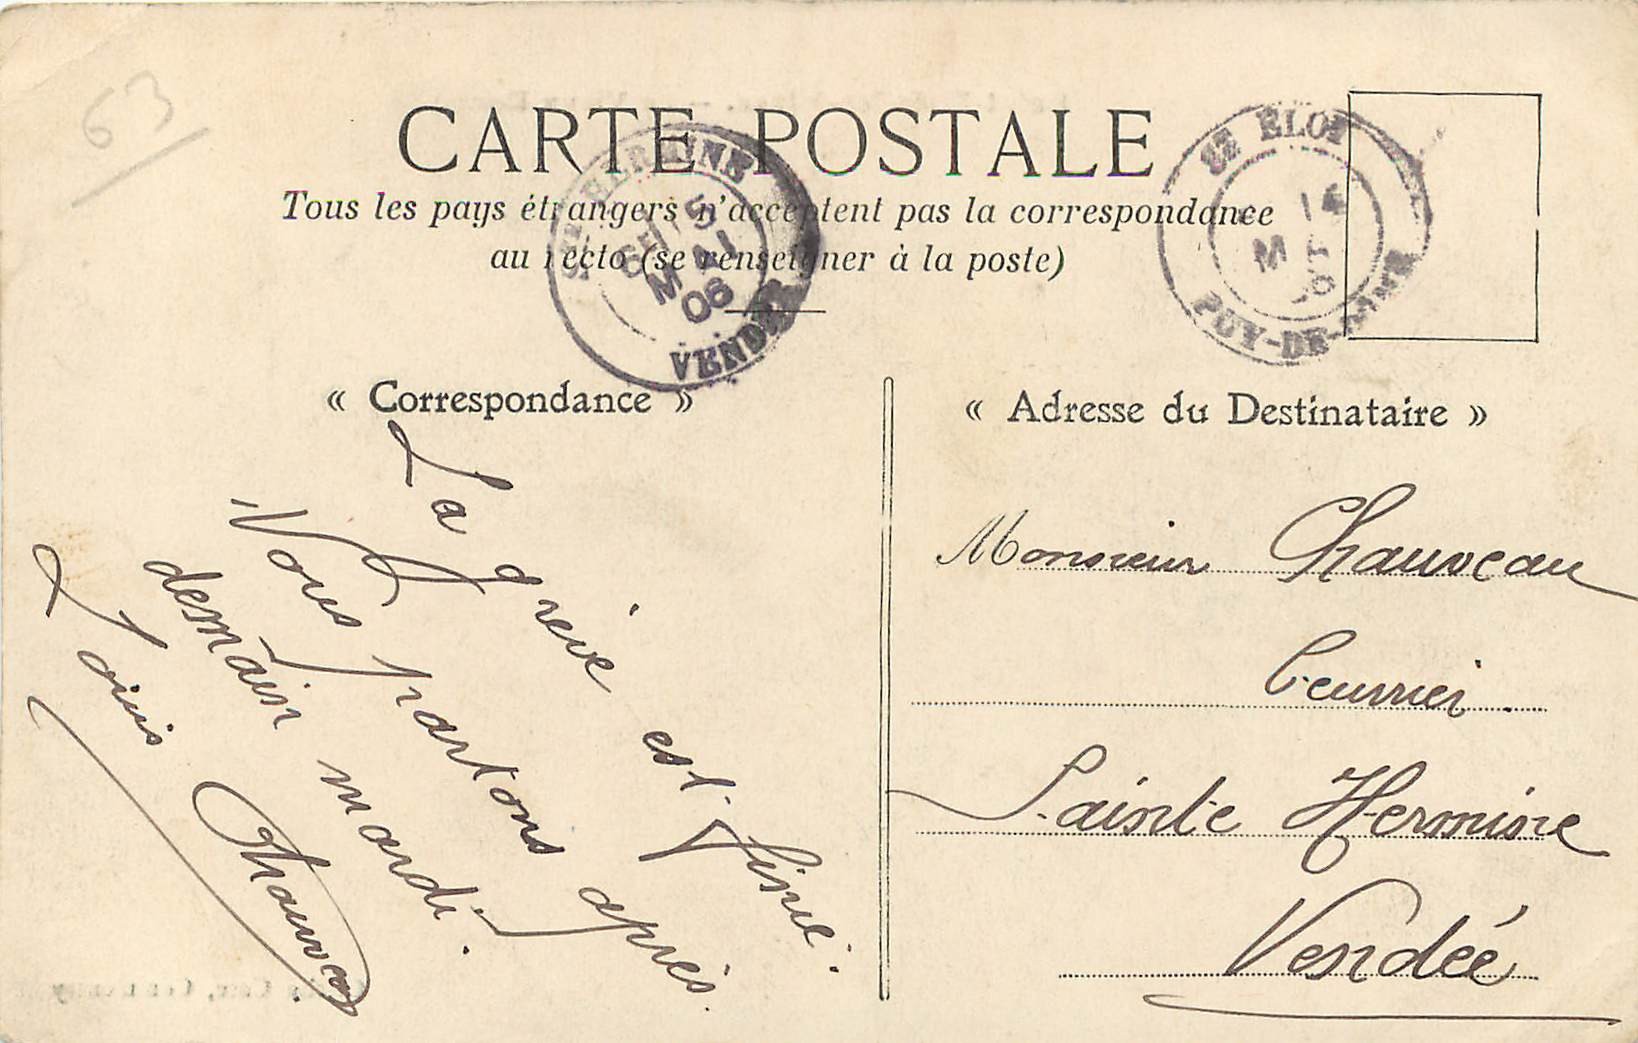 63
CARTE POSTALE
Tous les pays étrangers n'acceptent pas la correspondance
au recto (se renseigner à la poste)
STE HERMINE
5
MAI
06
VENDÉE
ST ELOI
14
M
PUY-DE-DÔME
« Correspondance »
La grève est finie.
Nous partons après
demain mardi.
Louis Chauveau
« Adresse du Destinataire »
Monsieur Chauveau
Sainte Hermine
Vendée